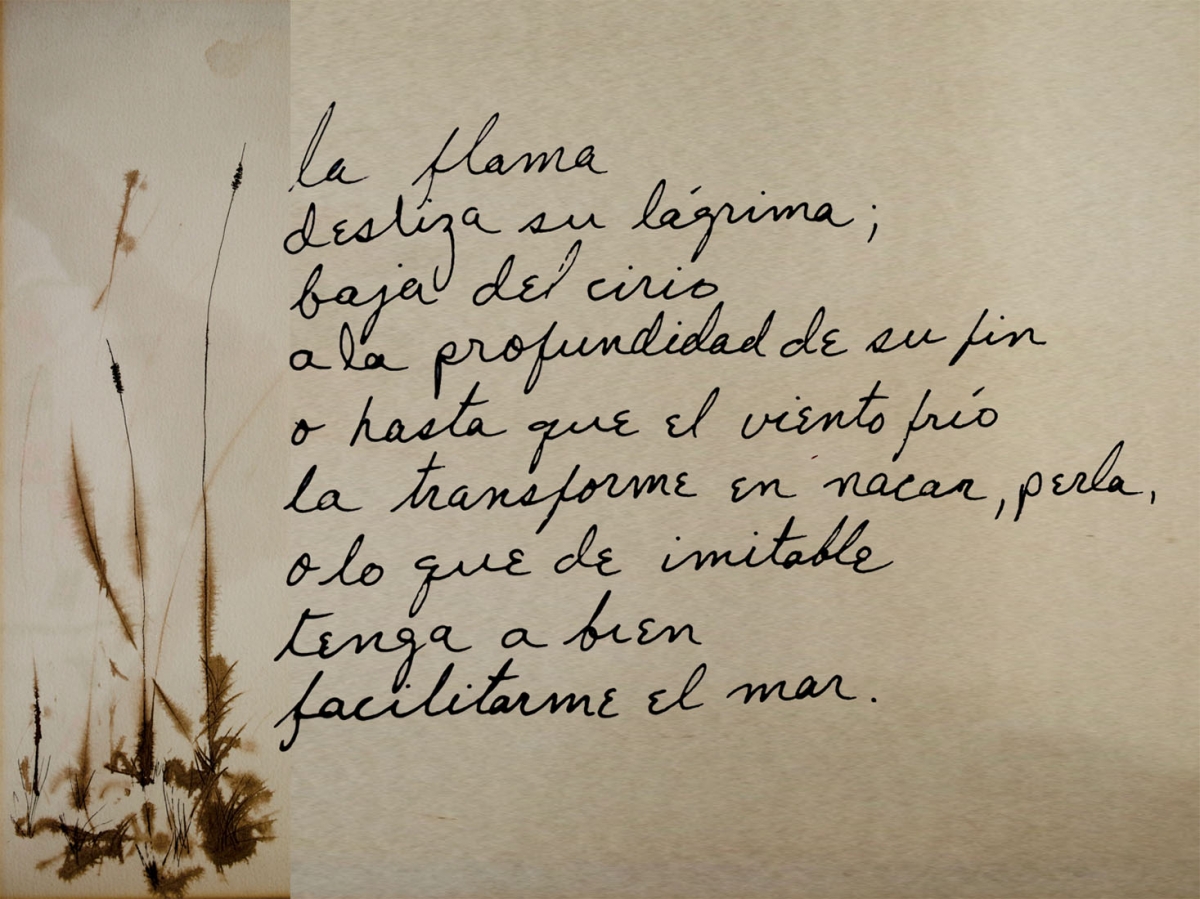 la flama
desliza su lágrima;
baja del cirio
a la profundidad de su fin
o hasta que el viento frío
la transforme en nacar, perla,
o lo que de imitable
tenga a bien
facilitarme el mar.